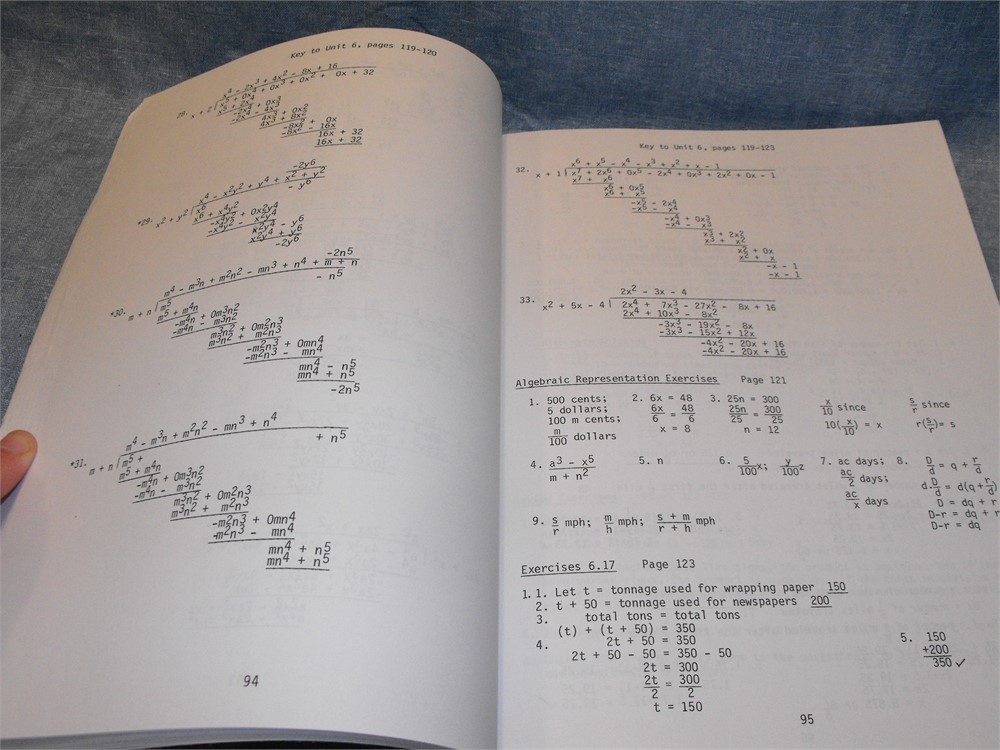 Key to Unit 6, pages 119-120
x⁴ - 2x³ + 4x² - 8x + 16
28. x + 2 x⁵ + 0x⁴ + 0x³ + 0x² + 0x + 32
x⁵ + 2x⁴
-2x⁴ + 0x³
-2x⁴ - 4x³
4x³ + 0x²
4x³ + 8x²
-8x² + 0x
-8x² - 16x
16x + 32
16x + 32
-2y⁶
x⁴ - x²y² + y⁴ + x² + y²
*29. x² + y² x⁶ - y⁶
x⁶ + x⁴y²
-x⁴y² + 0x²y⁴
-x⁴y² - x²y⁴
x²y⁴ - y⁶
x²y⁴ + y⁶
-2y⁶
-2n⁵
m⁴ - m³n + m²n² - mn³ + n⁴ + m + n
*30. m + n m⁵ - n⁵
m⁵ + m⁴n
-m⁴n + 0m³n²
-m⁴n - m³n²
m³n² + 0m²n³
m³n² + m²n³
-m²n³ + 0mn⁴
-m²n³ - mn⁴
mn⁴ - n⁵
mn⁴ + n⁵
-2n⁵
m⁴ - m³n + m²n² - mn³ + n⁴
*31. m + n m⁵ + + n⁵
m⁵ + m⁴n
-m⁴n + 0m³n²
-m⁴n - m³n²
m³n² + 0m²n³
m³n² + m²n³
-m²n³ + 0mn⁴
-m²n³ - mn⁴
mn⁴ + n⁵
mn⁴ + n⁵
94
Key to Unit 6, pages 119-123
x⁶ + x⁵ - x⁴ - x³ + x² + x - 1
32. x + 1 x⁷ + 2x⁶ + 0x⁵ - 2x⁴ + 0x³ + 2x² + 0x - 1
x⁷ + x⁶
x⁶ + 0x⁵
x⁶ + x⁵
-x⁵ - 2x⁴
-x⁵ - x⁴
-x⁴ + 0x³
-x⁴ - x³
x³ + 2x²
x³ + x²
x² + 0x
x² + x
-x - 1
-x - 1
2x² - 3x - 4
33. x² + 5x - 4 2x⁴ + 7x³ - 27x² - 8x + 16
2x⁴ + 10x³ - 8x²
-3x³ - 19x² - 8x
-3x³ - 15x² + 12x
-4x² - 20x + 16
-4x² - 20x + 16
Algebraic Representation Exercises Page 121
1. 500 cents;
5 dollars;
100 m cents;
m/100 dollars
2. 6x = 48
6x/6 = 48/6
x = 8
3. 25n = 300
25n/25 = 300/25
n = 12
x/10 since
10(x/10) = x
s/r since
r(s/r) = s
4. a³ - x⁵
m + n²
5. n
6. 5/100 x; y/100 z
7. ac days;
ac/2 days;
ac/x days
8. D/d = q + r/d
d·D/d = d(q + r/d)
D = dq + r
D-r = dq + r
D-r = dq
9. s/r mph; m/h mph; s + m/r + h mph
Exercises 6.17 Page 123
1. 1. Let t = tonnage used for wrapping paper 150
2. t + 50 = tonnage used for newspapers 200
3. total tons = total tons
(t) + (t + 50) = 350
4. 2t + 50 = 350
2t + 50 - 50 = 350 - 50
2t = 300
2t/2 = 300/2
t = 150
5. 150
+200
350 ✓
95